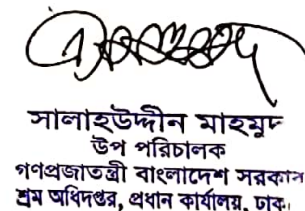 সালাহউদ্দীন মাহমুদ
উপ পরিচালক
গণপ্রজাতন্ত্রী বাংলাদেশ সরকার
শ্রম অধিদপ্তর, প্রধান কার্যালয়, ঢাকা